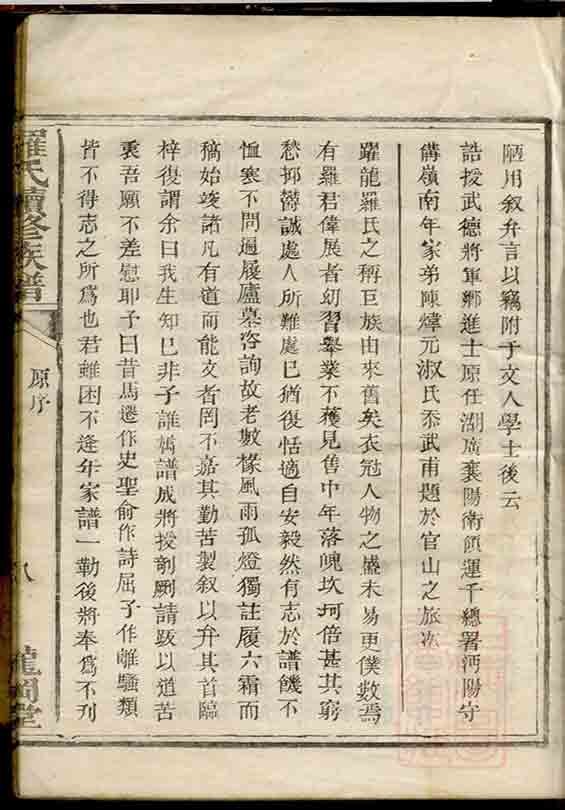 陋用叙弁言以竊附于文人學士後云
誥授武德將軍鄉進士原任湖廣襄陽衛領運千總署沔陽守
備嶺南年家弟陳煒元淑氏忝武甫題於官山之旅次
躍龍羅氏之稱巨族由來舊矣衣冠人物之盛未易更僕數焉
有羅君偉展者幼習舉業不獲見售中年落魄坎坷倍甚其窮
愁抑鬱誠處人所難處已猶復恬適自安毅然有志於譜饑不
恤寒不問遍履廬墓咨詢故老數椽風雨孤燈獨註履六霜而
稿始竣諸凡有道而能文者罔不嘉其勤苦製叙以弁其首臨
梓復謂余曰我生知已非子誰嫣譜成將授剞劂請跋以道苦
衷吾願不差慰耶予曰昔馬遷作史聖俞作詩屈子作離騷類
皆不得志之所爲也君雖困不逢年家譜一勒後將奉爲不刋
羅氏續修族譜
原序
八